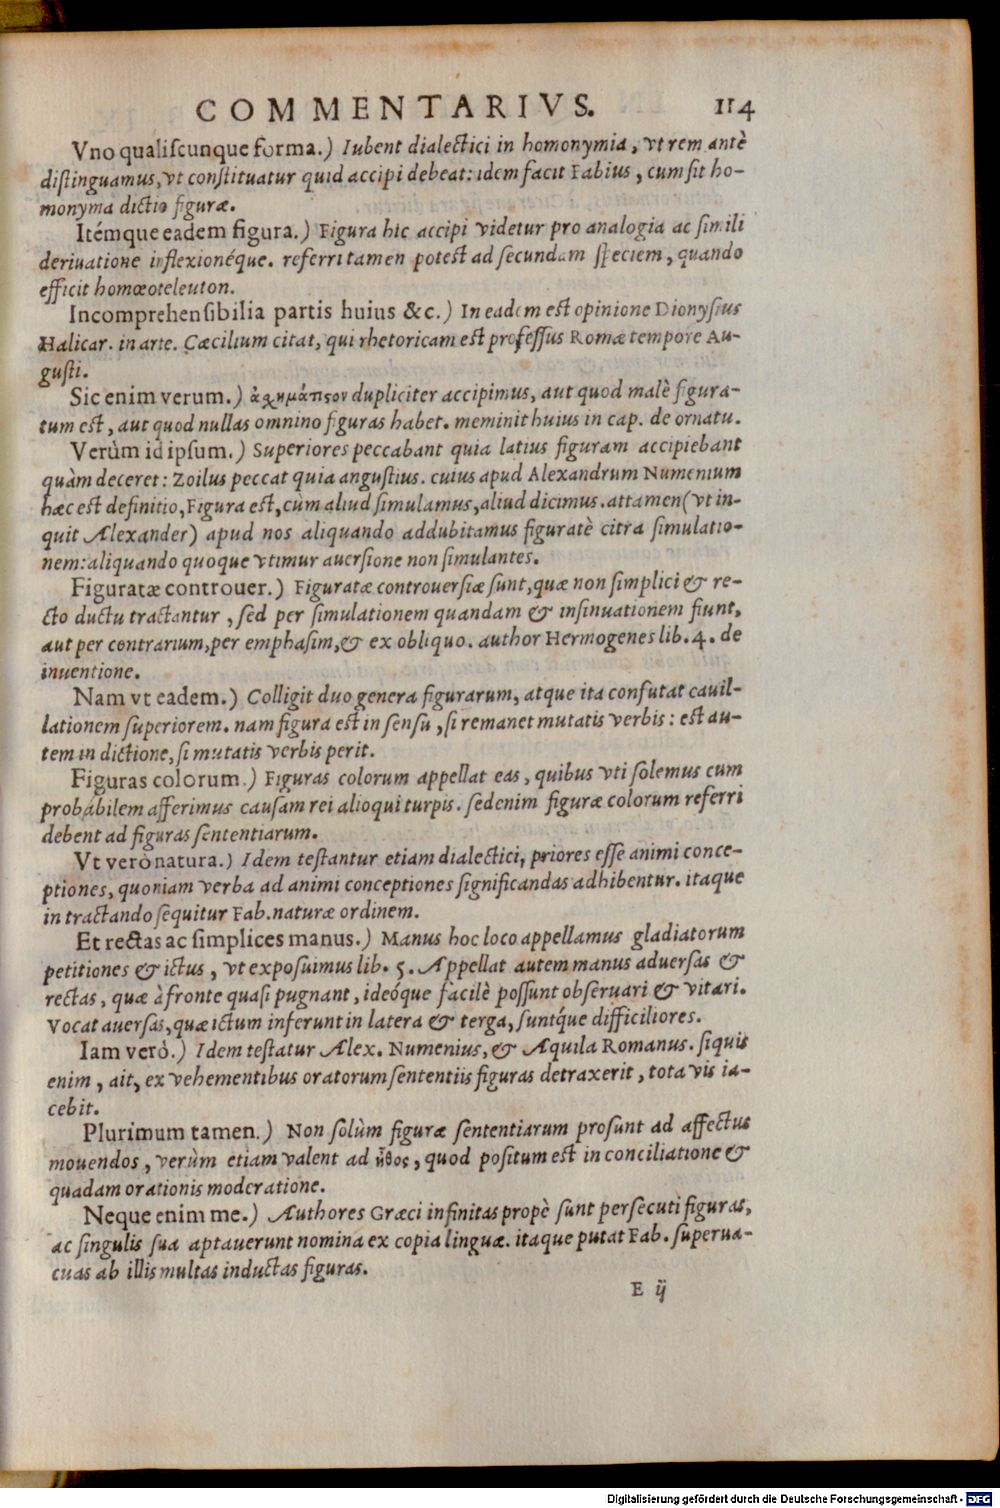 COMMENTARIVS. 114
Vno qualiscunque forma.) Iubent dialectici in homonymia, vt rem antè
distinguamus, vt constituatur quid accipi debeat: idem facit Fabius, cum sit ho-
monyma dictio figuræ.
Itémque eadem figura.) Figura hic accipi videtur pro analogia ac simili
deriuatione inflexionéque. referri tamen potest ad secundam speciem, quando
efficit homœoteleuton.
Incomprehensibilia partis huius &c.) In eadem est opinione Dionysius
Halicar. in arte. Cæcilium citat, qui rhetoricam est professus Romæ tempore Au-
gusti.
Sic enim verum.) ἀχημάτιστον dupliciter accipimus, aut quod malè figura-
tum est, aut quod nullas omnino figuras habet. meminit huius in cap. de ornatu.
Verùm id ipsum.) Superiores peccabant quia latius figuram accipiebant
quàm deceret: Zoilus peccat quia angustius. cuius apud Alexandrum Numenium
hæc est definitio, Figura est, cùm aliud simulamus, aliud dicimus. attamen (vt in-
quit Alexander) apud nos aliquando addubitamus figuratè citra simulatio-
nem: aliquando quoque vtimur auersione non simulantes.
Figuratæ controuer.) Figuratæ controuersiæ sunt, quæ non simplici & re-
cto ductu tractantur, sed per simulationem quandam & insinuationem fiunt,
aut per contrarium, per emphasim, & ex obliquo. author Hermogenes lib. 4. de
inuentione.
Nam vt eadem.) Colligit duo genera figurarum, atque ita confutat cauil-
lationem superiorem. nam figura est in sensu, si remanet mutatis verbis: est au-
tem in dictione, si mutatis verbis perit.
Figuras colorum.) Figuras colorum appellat eas, quibus vti solemus cum
probabilem afferimus causam rei alioqui turpis. sed enim figuræ colorum referri
debent ad figuras sententiarum.
Vt verò natura.) Idem testantur etiam dialectici, priores esse animi conce-
ptiones, quoniam verba ad animi conceptiones significandas adhibentur. itaque
in tractando sequitur Fab. naturæ ordinem.
Et rectas ac simplices manus.) Manus hoc loco appellamus gladiatorum
petitiones & ictus, vt exposuimus lib. 5. Appellat autem manus aduersas &
rectas, quæ à fronte quasi pugnant, ideóque facilè possunt obseruari & vitari.
Vocat auersas, quæ ictum inferunt in latera & terga, suntq́ue difficiliores.
Iam verò.) Idem testatur Alex. Numenius, & Aquila Romanus. siquis
enim, ait, ex vehementibus oratorum sententiis figuras detraxerit, tota vis ia-
cebit.
Plurimum tamen.) Non solùm figuræ sententiarum prosunt ad affectus
mouendos, verùm etiam valent ad ἦθος, quod positum est in conciliatione &
quadam orationis moderatione.
Neque enim me.) Authores Græci infinitas propè sunt persecuti figuras,
ac singulis sua aptauerunt nomina ex copia linguæ. itaque putat Fab. superua-
cuas ab illis multas inductas figuras.
E ij
Digitalisierung gefördert durch die Deutsche Forschungsgemeinschaft - DFG